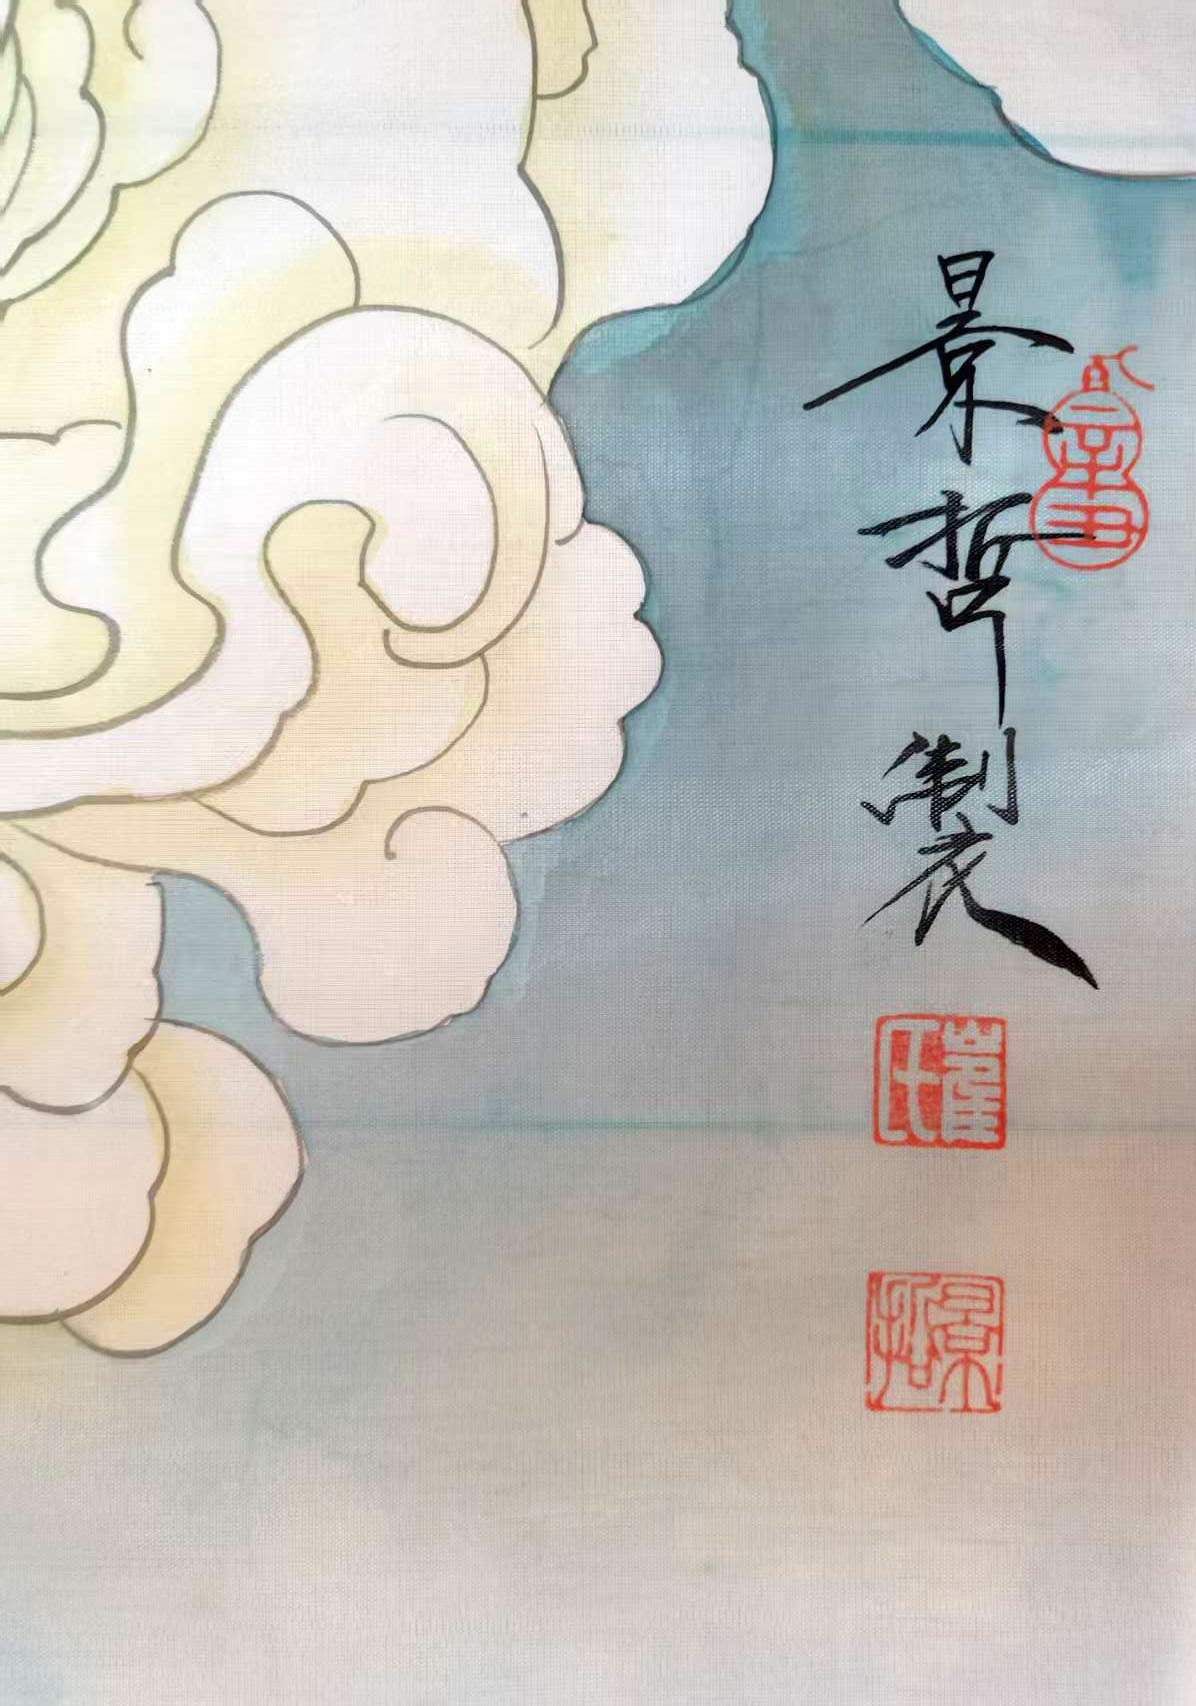 景哲製
崔氏
景哲